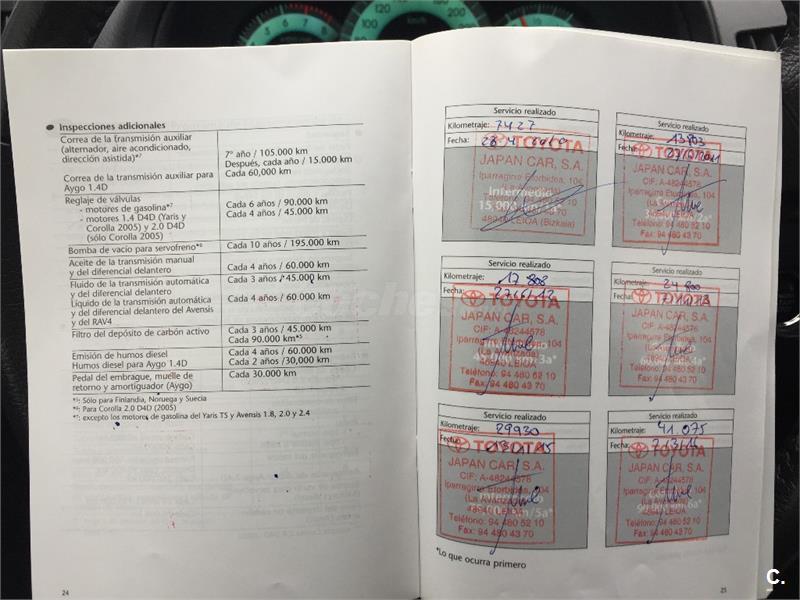 Inspecciones adicionales
Correa de la transmisión auxiliar
(alternador, aire acondicionado,
dirección asistida)*⁷
7º año / 105.000 km
Después, cada año / 15.000 km
Correa de la transmisión auxiliar para
Aygo 1.4D
Cada 60,000 km
Reglaje de válvulas
- motores de gasolina*⁷
Cada 6 años / 90.000 km
- motores 1.4 D4D (Yaris y
Corolla 2005) y 2.0 D4D
(sólo Corolla 2005)
Cada 4 años / 45.000 km
Bomba de vacio para servofreno*⁶
Cada 10 años / 195.000 km
Aceite de la transmisión manual
y del diferencial delantero
Cada 4 años / 60.000 km
Fluido de la transmisión automática
y del diferencial delantero
Cada 3 años / 45.000 km
Líquido de la transmisión automática
y del diferencial delantero del Avensis
y del RAV4
Cada 4 años / 60.000 km
Filtro del depósito de carbón activo
Cada 3 años / 45.000 km
Cada 90.000 km*⁵
Emisión de humos diesel
Cada 4 años / 60.000 km
Humos diesel para Aygo 1.4D
Cada 2 años /30,000 km
Pedal del embrague, muelle de
retorno y amortiguador (Aygo)
Cada 30.000 km
*⁵: Sólo para Finlandia, Noruega y Suecia
*⁶: Para Corolla 2.0 D4D (2005)
*⁷: excepto los motores de gasolina del Yaris TS y Avensis 1.8, 2.0 y 2.4
24
Servicio realizado
Kilometraje: 7427
Fecha:
TOYOTA
JAPAN CAR, S.A.
Iparragirre Etorbidea, 104
Intermedio
15.000 km
48940 LEIOA (Bizkaia)
Servicio realizado
Kilometraje: 13803
Fecha:
TOYOTA
JAPAN CAR, S.A.
CIF: A-48244578
Iparragirre Etorbidea, 104
(La Avanzada)
48940 LEIOA
Teléfono: 94 480 52 10
Fax: 94 480 43 70
Servicio realizado
Kilometraje: 17 808
Fecha:
TOYOTA
JAPAN CAR, S.A.
CIF: A-48244578
Iparragirre Etorbidea, 104
(La Avanzada)
48940 LEIOA
Teléfono: 94 480 52 10
Fax: 94 480 43 70
Servicio realizado
Kilometraje: 24 800
Fecha:
TOYOTA
JAPAN CAR, S.A.
CIF: A-48244578
Iparragirre Etorbidea, 104
(La Avanzada)
48940 LEIOA
Teléfono: 94 480 52 10
Fax: 94 480 43 70
Servicio realizado
Kilometraje: 29930
Fecha:
TOYOTA
JAPAN CAR, S.A.
CIF: A-48244578
Iparragirre Etorbidea, 104
(La Avanzada)
48940 LEIOA
Teléfono: 94 480 52 10
Fax: 94 480 43 70
Servicio realizado
Kilometraje: 41 075
Fecha: 7/3/16
TOYOTA
JAPAN CAR, S.A.
CIF: A-48244578
Iparragirre Etorbidea, 104
(La Avanzada)
48940 LEIOA
Teléfono: 94 480 52 10
Fax: 94 480 43 70
*Lo que ocurra primero
25
C.